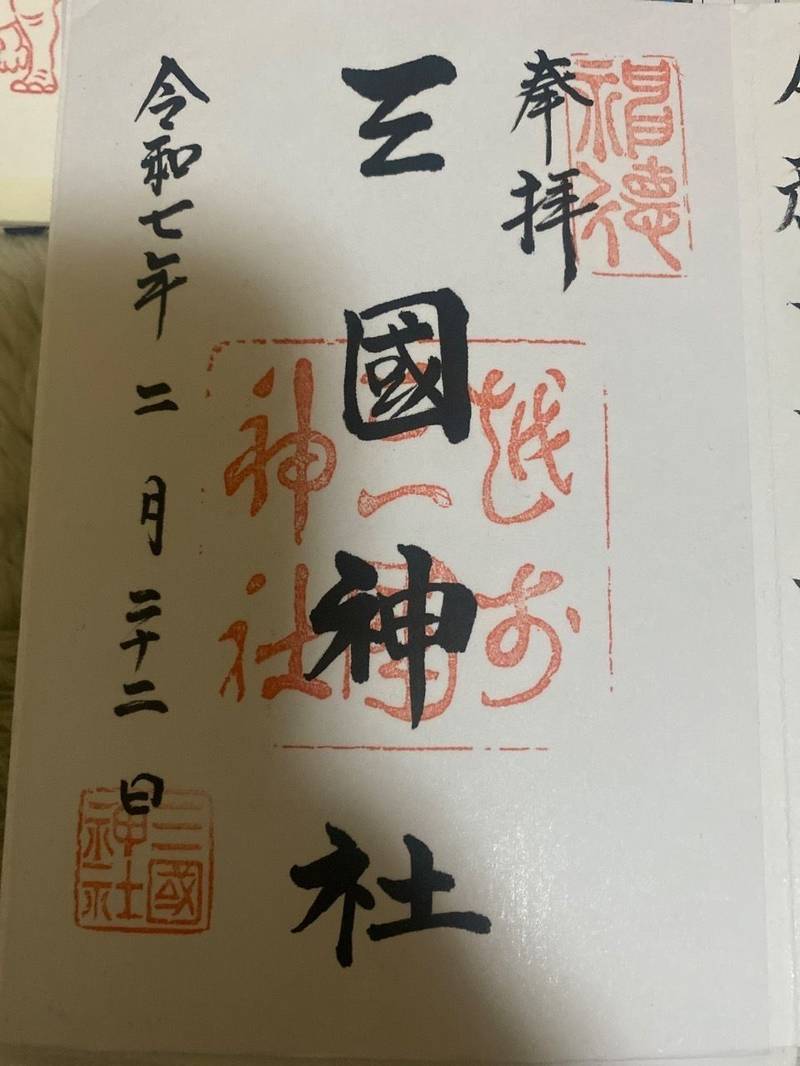 奉拝
三國神社
令和七年二月二十二日
越前
三國
神社
三國
神社